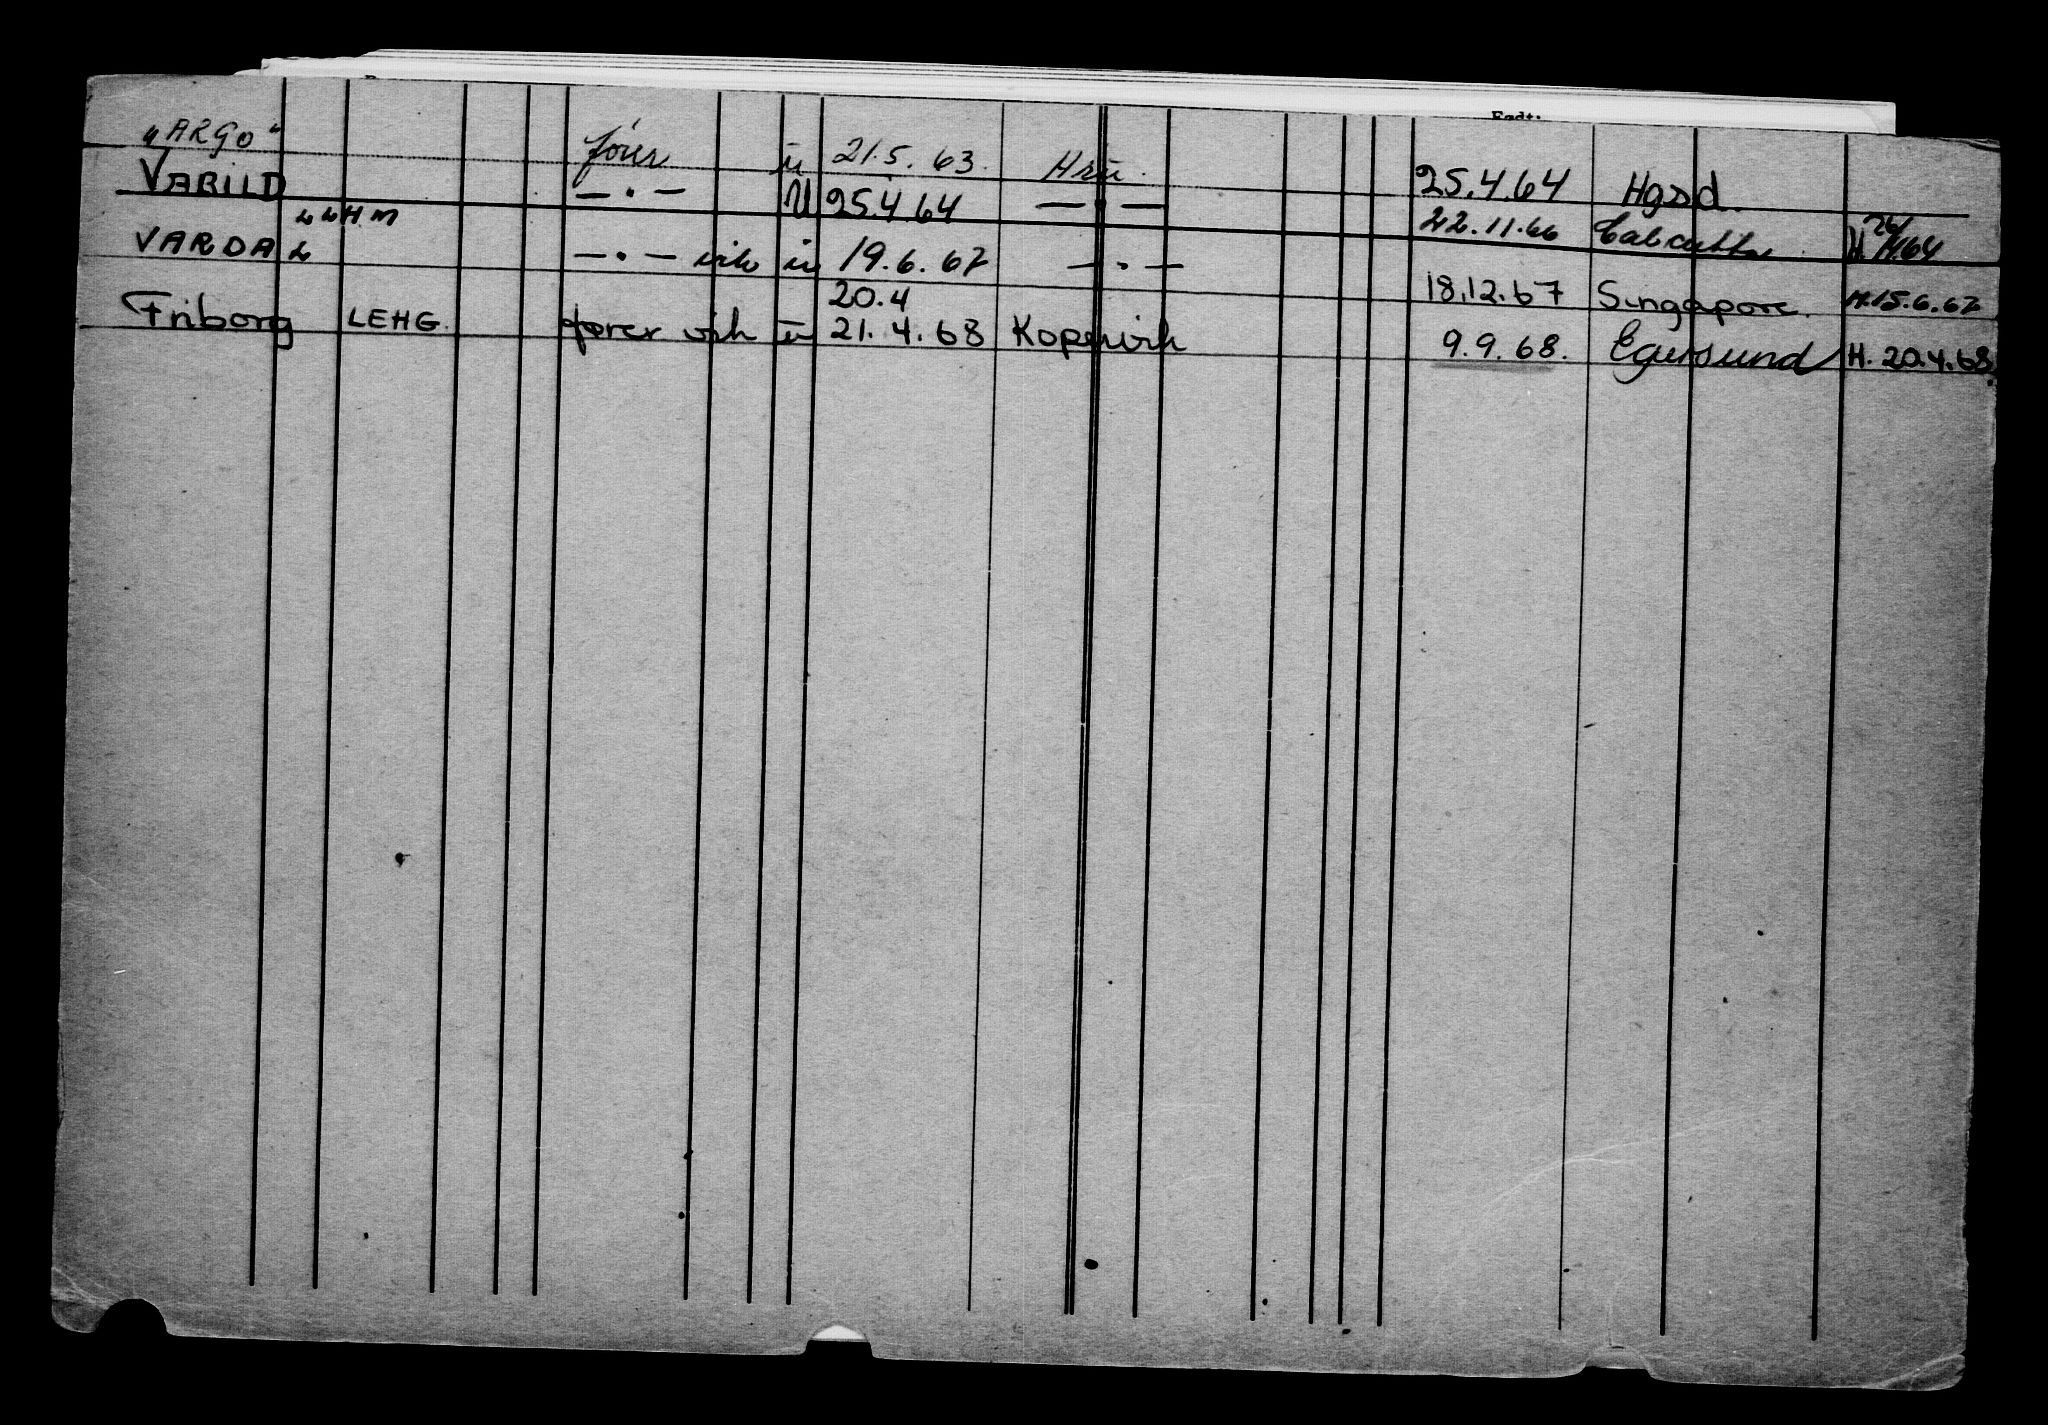 Født:
"ARGO" fører u 21.5.63. Hsu. 25.4.64 Hgsd.
VARILD LLHM —.— U 25.4.64 —.— 22.11.66 Calcutta H. 26/4.64
VARDA L —.— vik u 19.6.67 —.— 18.12.67 Singapore. H.15.6.67
20.4
Friborg LEHG. fører vik u 21.4.68 Kopervik 9.9.68. Egersund H. 20.4.68.